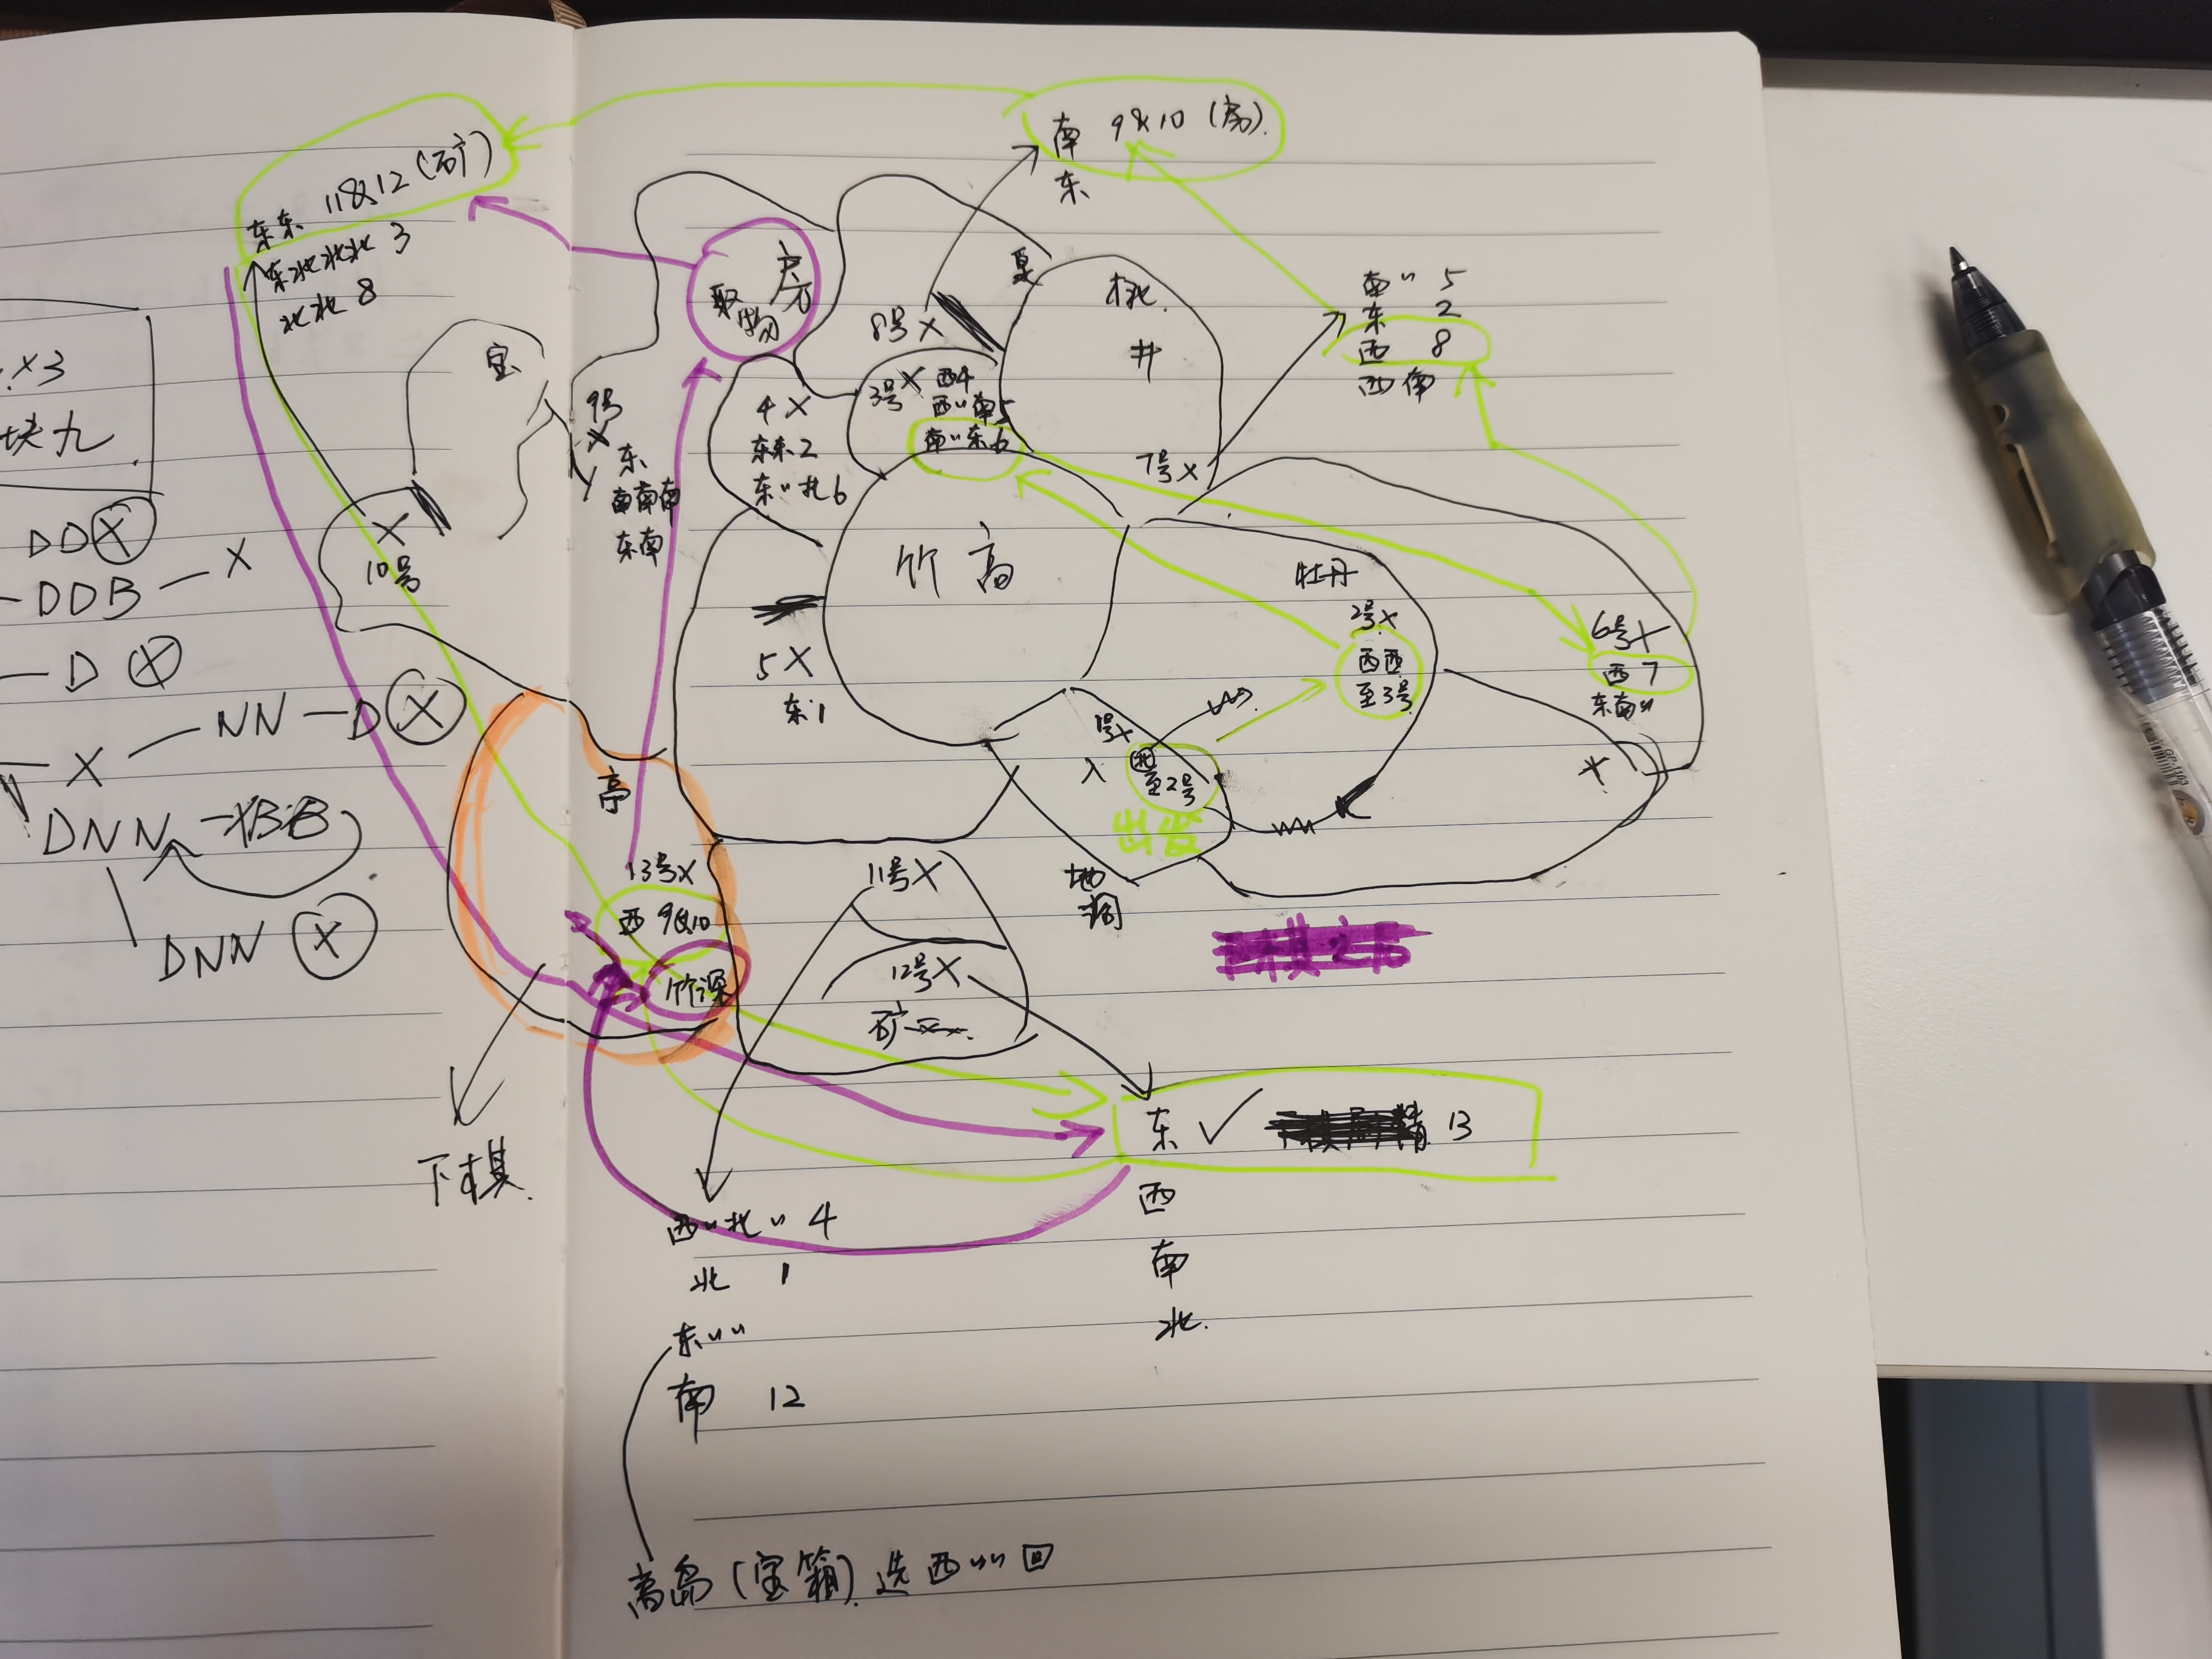 ×3
块九
DD X
DDB — X
D X
X — NN — D X
DNN
DNN X
南 9&10 (房)
东
11&12 (矿)
东东
东北北北 3
北北 8
房
取物
夏
桃
井
8号 X
南〃 5
东 2
西 8
西南
宝
9号
X
东
南南南
东南
4 X
东东2
东〃北6
3号X 西4
西〃南5
南〃东6
7号X
X
10号
竹高
牡丹
2号X
西西
至3号
6号X
西 7
东南〃
5 X
东1
1号X
入 北
至2号
出发
X
地洞
亭
13号X
西 9&10
竹深
11号X
12号X
矿
下棋
东 ✓ 13
西
南
北
西〃北〃 4
北 1
东〃〃
南 12
高岛(宝箱) 选西〃〃回